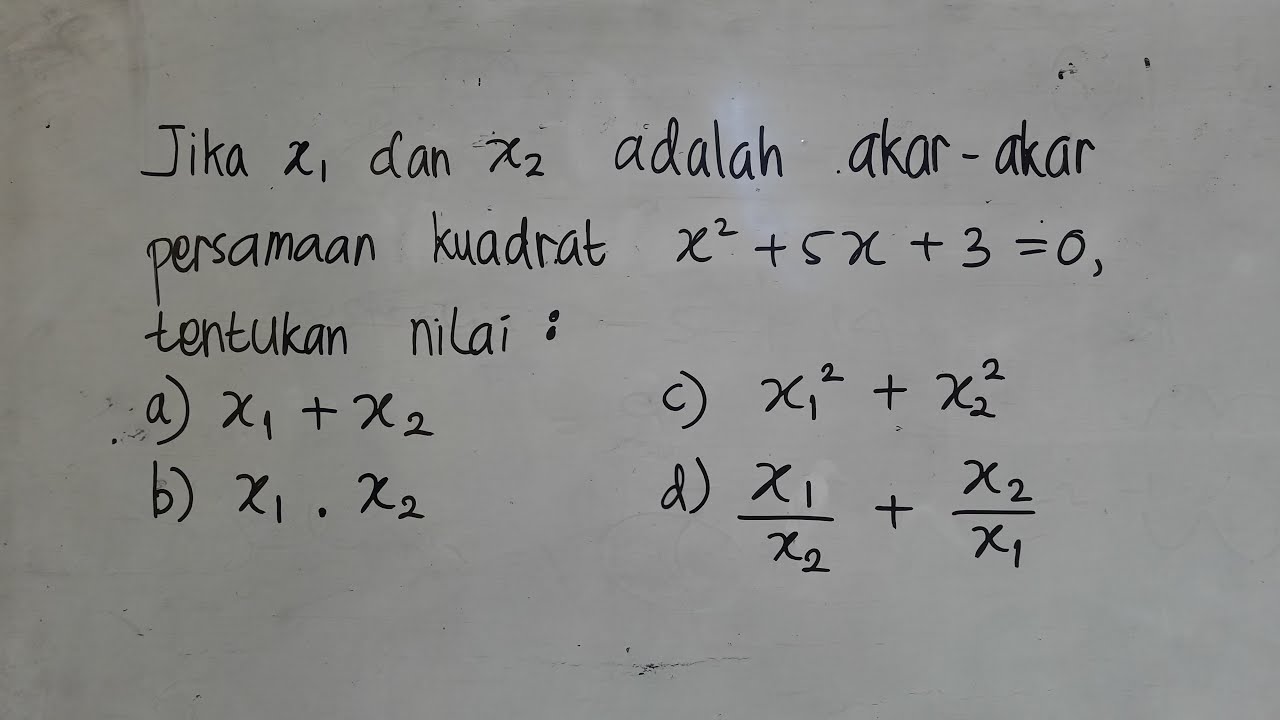 Jika x₁ dan x₂ adalah akar-akar
persamaan kuadrat x² + 5x + 3 = 0,
tentukan nilai :
a) x₁ + x₂
b) x₁ . x₂
c) x₁² + x₂²
d) x₁/x₂ + x₂/x₁